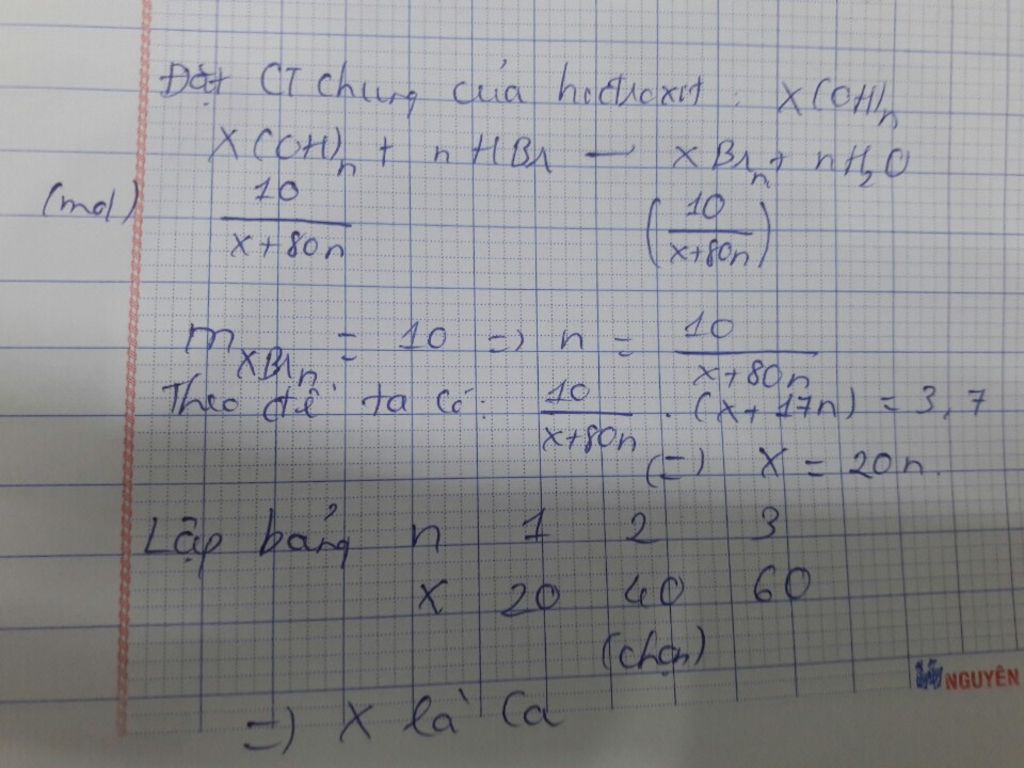 Đặt CT chung của hiđroxit : X(OH)n
X(OH)n + nHBr — XBrn + nH2O
(mol) 10/(x+80n) (10/(x+80n))
mXBrn = 10 => n = 10/(x+80n)
Theo đề ta có: 10/(x+80n) . (x+17n) = 3,7
(=) X = 20n.
Lập bảng n 1 2 3
X 20 40 60
(chọn)
=) X là Ca
NGUYÊN